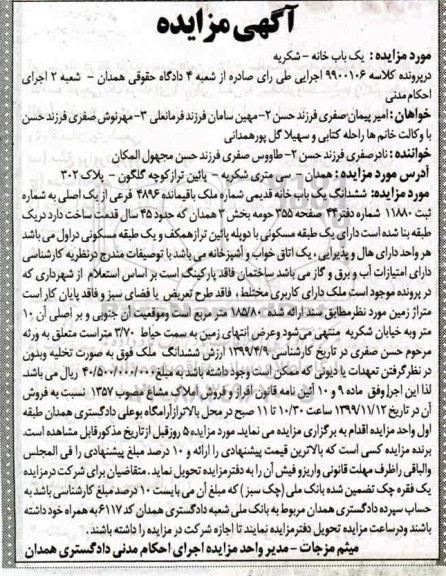 آگهی مزایده
مورد مزایده : یک باب خانه – شکریه
درپرونده کلاسه ۹۹۰۰۱۰۶ اجرایی طی رای صادره از شعبه ۴ دادگاه حقوقی همدان – شعبه ۲ اجرای
احکام مدنی
خواهان : امیر پیمان صفری فرزند حسن ۲- مهین سامان فرزند فرمانعلی ۳- مهرنوش صفری فرزند حسن
با وکالت خانم ها راحله کتابی و سهیلا گل پورهمدانی
خوانده : نادر صفری فرزند حسن ۲- طاووس صفری فرزند حسن مجهول المکان
آدرس مورد مزایده : همدان – سی متری شکریه – پائین تراز کوچه گلگون – پلاک ۳۰۲
مورد مزایده: ششدانگ یک باب خانه قدیمی شماره ملک باقیمانده ۴۸۹۶ فرعی از یک اصلی به شماره
ثبت ۱۱۸۸۰ شماره دفتر ۴۴ صفحه ۳۵۵ حومه بخش ۳ همدان که حدود ۴۵ سال قدمت ساخت دارد دریک
طبقه بنا شده است دارای یک طبقه مسکونی با دوپله پائین تراز همکف و یک طبقه مسکونی در اول می باشد
هر واحد دارای هال و پذیرایی ، یک اتاق خواب و آشپزخانه می باشد با توصیفات مندرج درنظریه کارشناسی
دارای امتیازات آب و برق و گاز می باشد ساختمان فاقد پارکینگ است بر اساس استعلام از شهرداری که
در پرونده موجود است ملک دارای کاربری مختلط ، فاقد طرح تعریض یا فضای سبز و فاقد پایان کار است
متراژ زمین مورد نظر مطابق سند ارائه شده ۱۸۵/۸۰ متر مربع است وموقعیت آن جنوبی و بر اصلی آن ۱۰
متر وبه خیابان شکریه منتهی می شود وعرض انتهای زمین به سمت حیاط ۳/۷۰ متراست متعلق به ورثه
مرحوم حسن صفری در تاریخ کارشناسی ۱۳۹۹/۴/۹ ارزش ششدانگ ملک فوق به صورت تخلیه وبدون
در نظر گرفتن تعهدات یا دیونی که ممکن است وجود داشته باشد به مبلغ ۴۰/۵۰۰/۰۰۰/۰۰۰ ریال می باشد.
لذا این اجرا وفق ماده ۹ و ۱۰ آئین نامه قانون افراز و فروش املاک مشاع مصوب ۱۳۵۷ نسبت به فروش
آن در تاریخ ۱۳۹۹/۱۱/۱۲ ساعت ۱۰/۳۰ تا ۱۱ صبح در محل بالاتراز آرامگاه بوعلی دادگستری همدان طبقه
اول واحد مزایده اقدام به برگزاری مزایده می نماید. مورد مزایده ۵ روز قبل از تاریخ مذکور قابل مشاهده است.
برنده مزایده کسی است که بالاترین قیمت پیشنهادی را ارائه و ۱۰ درصد مبلغ پیشنهادی را فی المجلس
والباقی را ظرف مهلت قانونی واریز و فیش آن را به دفتر مزایده تحویل نماید. متقاضیان برای شرکت در مزایده
یک فقره چک تضمین شده بانک ملی (چک سبز) که مبلغ آن می بایست ۱۰ درصد مبلغ کارشناسی باشد به
حساب سپرده دادگستری همدان مربوط به بانک ملی شعبه دادگستری همدان کد ۶۱۱۷ به همراه خود داشته
باشند ودرساعت مزایده تحویل دفتر مزایده نمایند تا اجازه شرکت در مزایده را داشته باشند.
میثم مزجات – مدیر واحد مزایده اجرای احکام مدنی دادگستری همدان